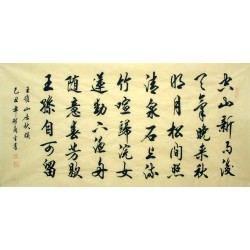 空山新雨後
天氣晚來秋
明月松間照
清泉石上流
竹喧歸浣女
蓮動下漁舟
隨意春芳歇
王孫自可留
王維山居秋暝
己丑年書